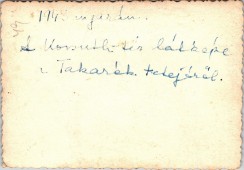 nyarán.
A Kossuth tér látképe
a Takarék tetejéről.